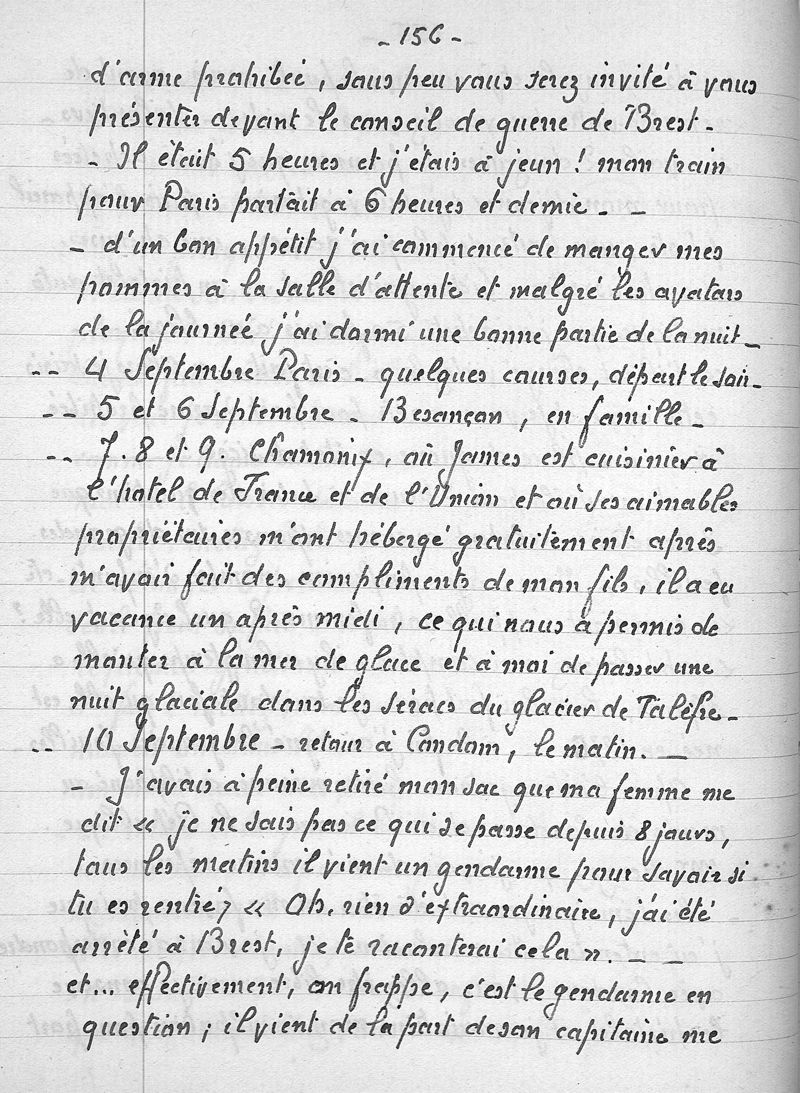 - 156 -
d'arme prohibeé, sous peu vous serez invité à vous
présenter devant le conseil de guerre de Brest -
- Il était 5 heures et j'étais à jeun ! mon train
pour Paris partait à 6 heures et demie - -
- d'un bon appétit j'ai commencé de manger mes
pommes à la salle d'attente et malgré les avatars
de la journeé j'ai dormi une bonne partie de la nuit -
-- 4 Septembre Paris - quelques courses, départ le soir -
-- 5 et 6 Septembre - Besançon, en famille -
-- 7. 8 et 9. Chamonix, où James est cuisinier à
l'hotel de France et de l'Union et où ses aimables
propriétaires m'ont hébergé gratuitement après
m'avoir fait des compliments de mon fils, il a eu
vacance un après midi, ce qui nous a permis de
monter à la mer de glace et à moi de passer une
nuit glaciale dans les séracs du glacier de Talèfre -
-- 10 Septembre - retour à Condom, le matin. -
- J'avais à peine retiré mon sac que ma femme me
dit « je ne sais pas ce qui se passe depuis 8 jours,
tous les matins il vient un gendarme pour savoir si
tu es rentré, « Oh, rien d'extraordinaire, j'ai été
arrêté à Brest, je te raconterai cela ». - -
et... effectivement, on frappe, c'est le gendarme en
question ; il vient de la part de son capitaine me